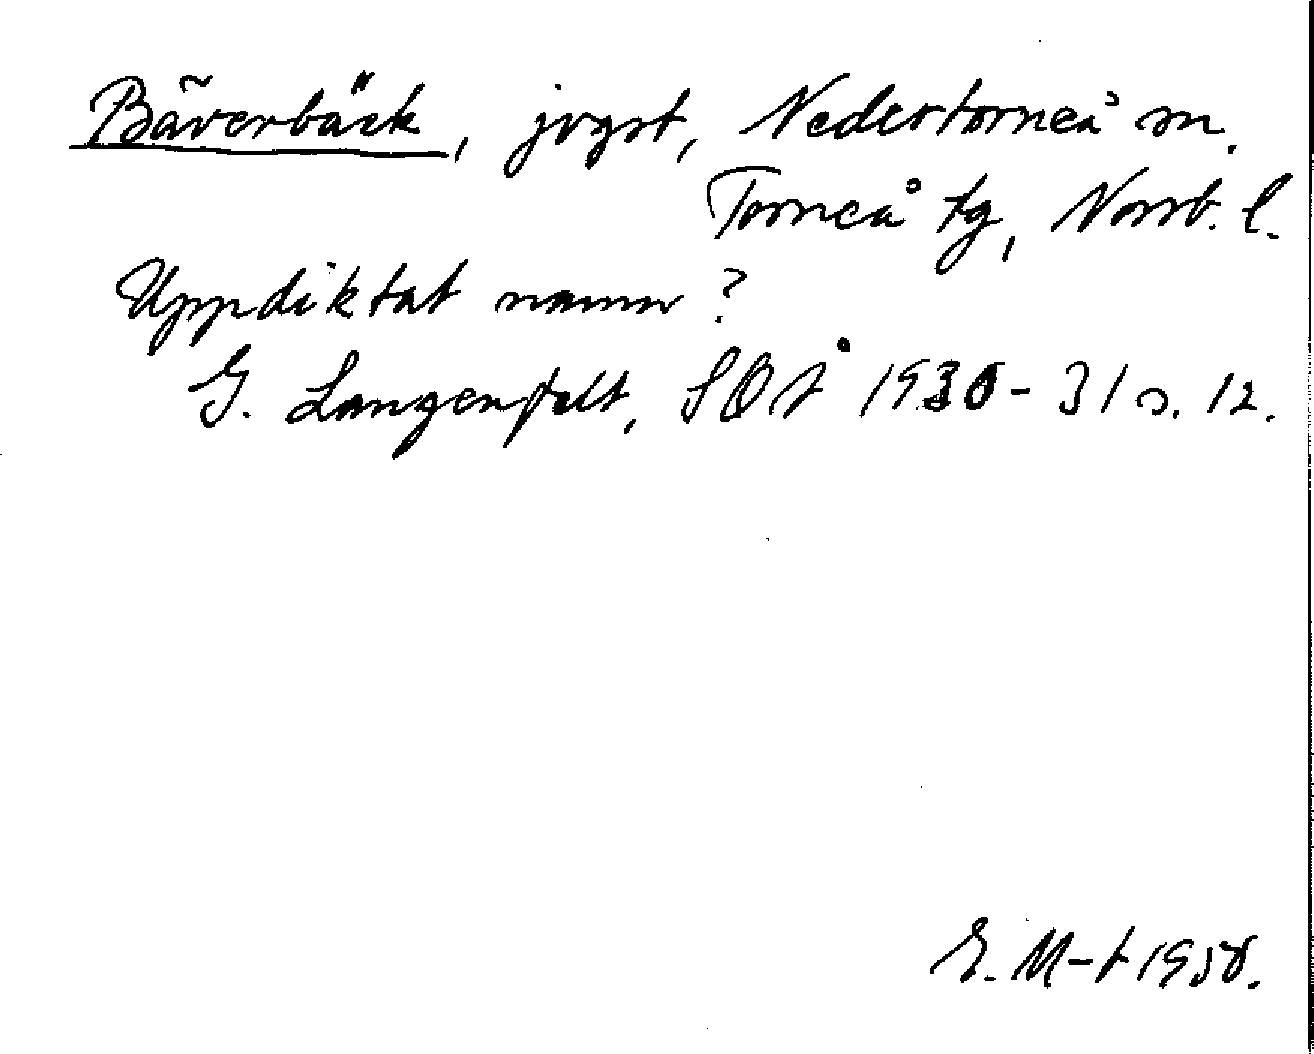 Bäverbäck, jvgst, Nedertorneå sn.
Torneå tg, Norrb. l.
Uppdiktat namn?
G. Langenfelt, SOÅ 1930-31 s. 12.
E. M-t 1958.